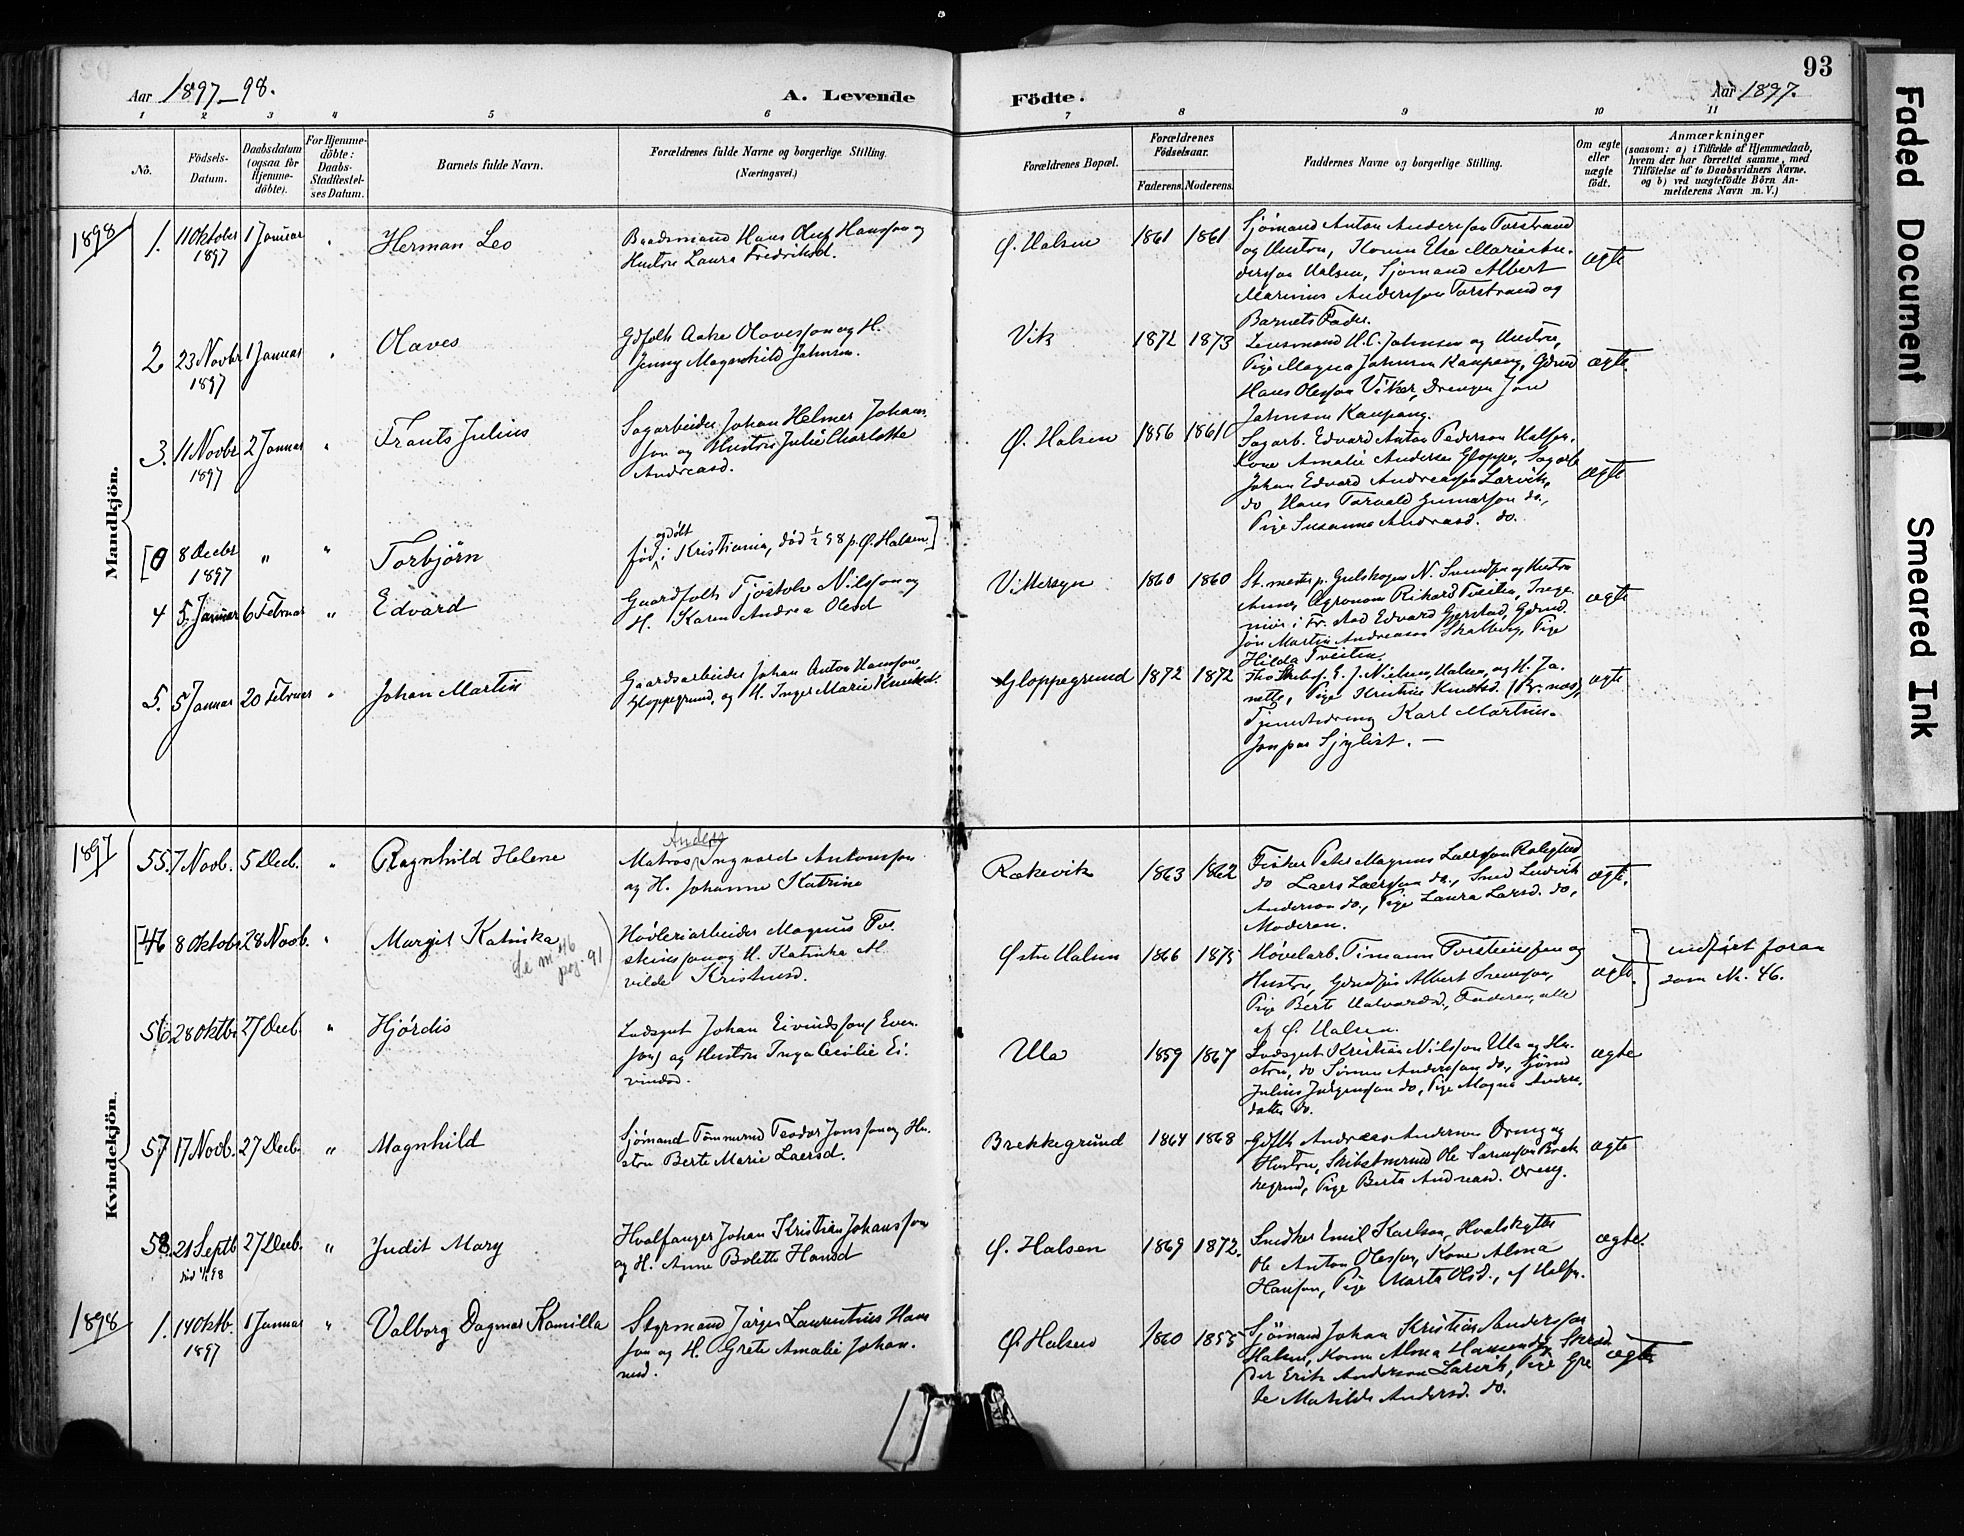 93
Aar 1897-98. A. Levende Födte. Aar 1897.
1 2 3 4 5 6 7 8 9 10 11
No.
Födsels-
Datum.
Daabsdatum
(ogsaa for
Hjemme-
döbte).
For Hjemme-
döbte:
Daabs-
Stadfæstel-
ses Datum.
Barnets fulde Navn.
Forældrenes fulde Navne og borgerlige Stilling.
(Næringsvei.)
Forældrenes Bopæl.
Forældrenes
Födselsaar.
Faderens. Moderens.
Faddernes Navne og borgerlige Stilling.
Om ægte
eller
uægte
födt.
Anmærkninger
(saasom: a) i Tilfælde af Hjemmedaab,
hvem der har forrettet samme, med
Tilföielse af to Daabsvidners Navne.
og b) ved uægtefödte Börn An-
melderens Navn m. V.)
Mandkjön.
1898
1. 11 Oktober 1897 1 Januar " Herman Leo
Baadsmand Hans Oluf Hansson og
Hustru Laura Fredriksd.
Ø. Halsen 1861 1861
Sjömand Anton Andersson Torstrand
og Hustru, Konen Else Marie An-
dersson Halsen, Sjömand Albert
Marinius Andersson Torstrand og
Barnets Fader.
ægte
2 23 Novbr 1897 1 Januar " Olaves
Gdfolk Aake Olavesson og H.
Jenny Magnhild Johnsen.
Vik 1872 1873
Lensmand H.C. Johnsen og Hustru,
Pige Magna Johnsen Kaupang, Gdmd
Hans Olesson Viker, Drengen Jon
Johnsen Kaupang.
ægte.
3. 11 Novbr 1897 2 Januar " Frants Julius
Sagarbeider Johan Helmer Johans-
son og Hustru Julie Charlotte
Andreasd.
Ø. Halsen 1856 1861
Sagarb. Edvard Anton Pederson Halsen,
Kone Amalie Andersen Gloppe, Sagarb
Johan Edvard Andreasson Larvik,
do Hans Torvald Gunnarson do.,
Pige Susanne Andreasd. do.
ægte
[0 8 Decbr 1897 " " Torbjørn
og døbt
født i Kristiania, död 1/2 98 p. Ø. Halsen.]
4 5 Januar 6 Februar " Edvard
Gaardfolk Tjöstolv Nilsson og
H. Karen Andrea Olesd
Vittersyn 1860 1860
St.mester p. Gulskogen N. Svendsen og Hustru
Anna, Agronom Rikard Tveiten, Inge-
niör i Fr.stad Edvard Gjerstad, Gdmd.
Jon Martin Andreasen Skalberg, Pige
Hilda Tveiten.
ægte
5. 5 Januar 20 Februar " Johan Martin
Gaardsarbeider Johan Anton Hansson
Gloppegrund, og H. Inger Marie Knudsd.
Gloppegrund 1872 1872
E. J. Nielsen, Halsen, og H. Ja-
nette, Pige Kristine Knudsd.
Tjenestedreng Karl Martin-
ægte
Kvindekjön.
1897
55. 7 Novb. 5 Decb. " Ragnhild Helene
Anders
Matros Ingvard Antonsson
og H. Johanne Katrine
Rækevik 1863 1862
Fisker Peter Magnus Laersson
do Laers Laersson do., Smed Ludvik
Anderson do., Pige Laura Larsd. do,
Moderen.
ægte.
[46 8 Oktobr 28 Novb. " (Margit Katinka)
se nr 46
pag. 91
Høvleriarbeider Magnus Tor-
steinsson og H. Katinka M-
vilde Kristensd.
Østre Halsen 1866 1875
Høvelarb. Timann Torsteinssen og
Hustru, Albert Svensson,
Pige Berte Halvorsd., Faderen, alle
af Ø. Halsen.
ægte.
indført foran
som Nr. 46.
56 28 Oktbr 27 Decb. " Hjórdis
Lodsgut Johan Eivindsson (Even-
son) og Hustru Inga Cecilie Ei-
vindsd.
Ula 1859 1867
Lodsgut Kristian Nilsson Ula og Hu-
stru, do Simen Anderssen do., Sjömd
Julius Jørgenssen do, Pige Magna Anders-
datter do.
ægte
57 17 Novb. 27 Decb. " Magnhild
Sjömand Tömmermd Teodor Jonsson og Hu-
stru Berte Marie Laersd.
Brekkegrund 1864 1868
Gdflk Andreas Andersen Omey
Hustru, Skibstmmd Ole Sörensson Brek-
kegrund, Pige Berta Andreasd. Omey.
ægte
58. 21 Septb 27 Decb. " Judit Mary
Hvalfanger Johan Kristian Johansson
og H. Anne Bolette Hansd
Ø. Halsen 1869 1872.
Snedker Emil Karlsen, Hvalskytter
Ole Anton Olesson, Kone Alma
Hansson, Pige Marta Olsd., af Halsen.
ægte.
1898
1. 14 Oktb. 1897 1 Januar " Valborg Dagmar Kamilla
Styrmand Jörgen Laurentius Hans-
son og H. Grete Amalie Johan-
nesd.
Ø. Halsen 1860 1855
Sjömand Johan Kristian Andersson
Halsen, Konen Alma Hansen do, Skræd-
der Erik Anderson Larvik, Pige Gre-
te Matilde Andersd. do.
ægte
Faded Document
Smeared Ink